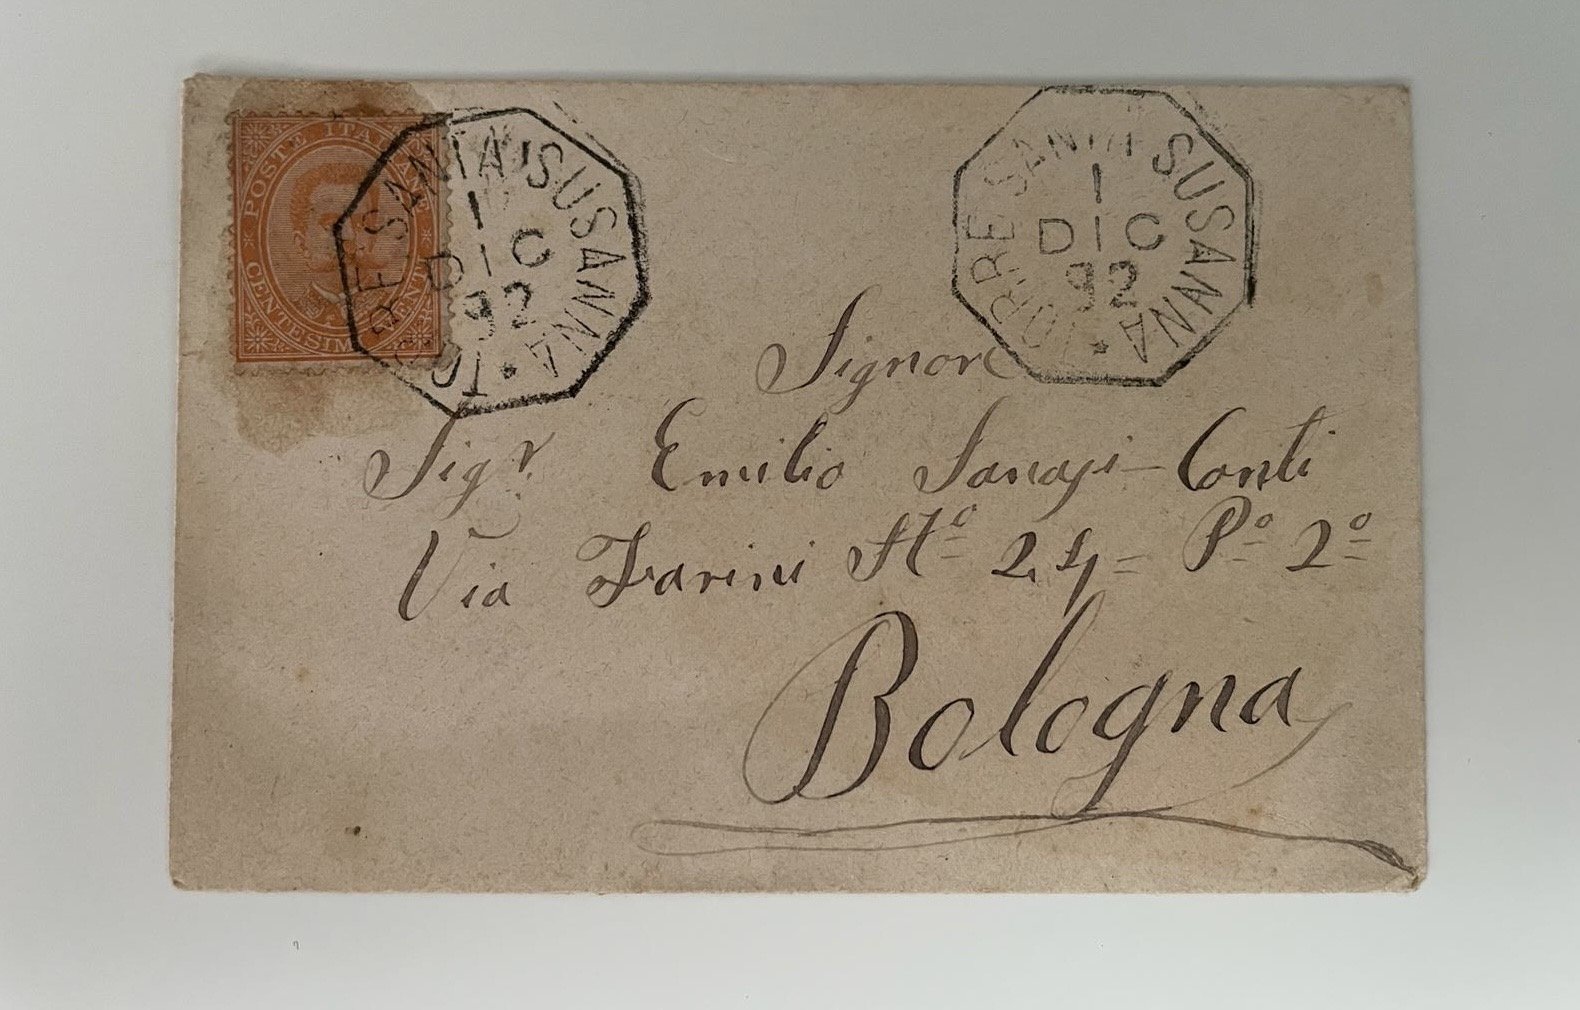 POSTE ITALIANE
CENTESIMI VENTI
TORRE SANTA SUSANNA
1
DIC
92
TORRE SANTA SUSANNA
1
DIC
92
Signore
Sigr. Emilio Conti
Via Farini No 24= Po 2o
Bologna